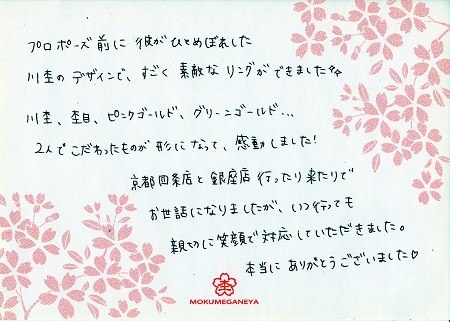 プロポーズ前に彼がひとめぼれした
川杢のデザインで、すごく素敵なリングができました
川杢、杢目、ピンクゴールド、グリーンゴールド...
2人でこだわったものが形になって、感動しました!
京都四条店と銀座店行ったり来たりで
お世話になりましたが、いつ行っても
親切に笑顔で対応していただきました。
本当にありがとうございました♡
杢
MOKUMEGANEYA